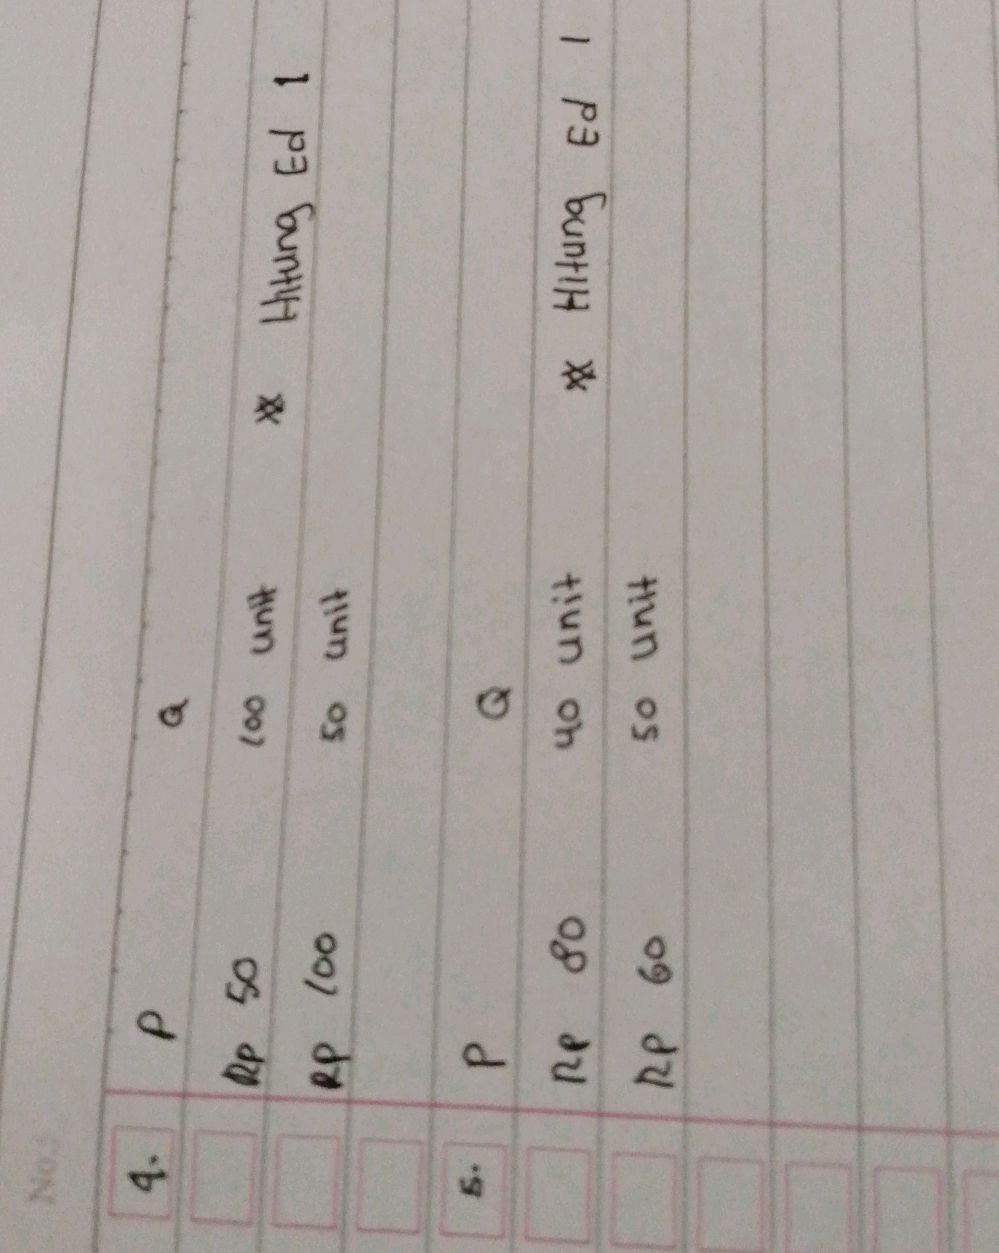 No.:
4. P Q
Rp 50 100 unit * Hitung Ed !
Rp 100 50 unit
5. P Q
Rp 80 40 unit * Hitung Ed !
Rp 60 50 unit